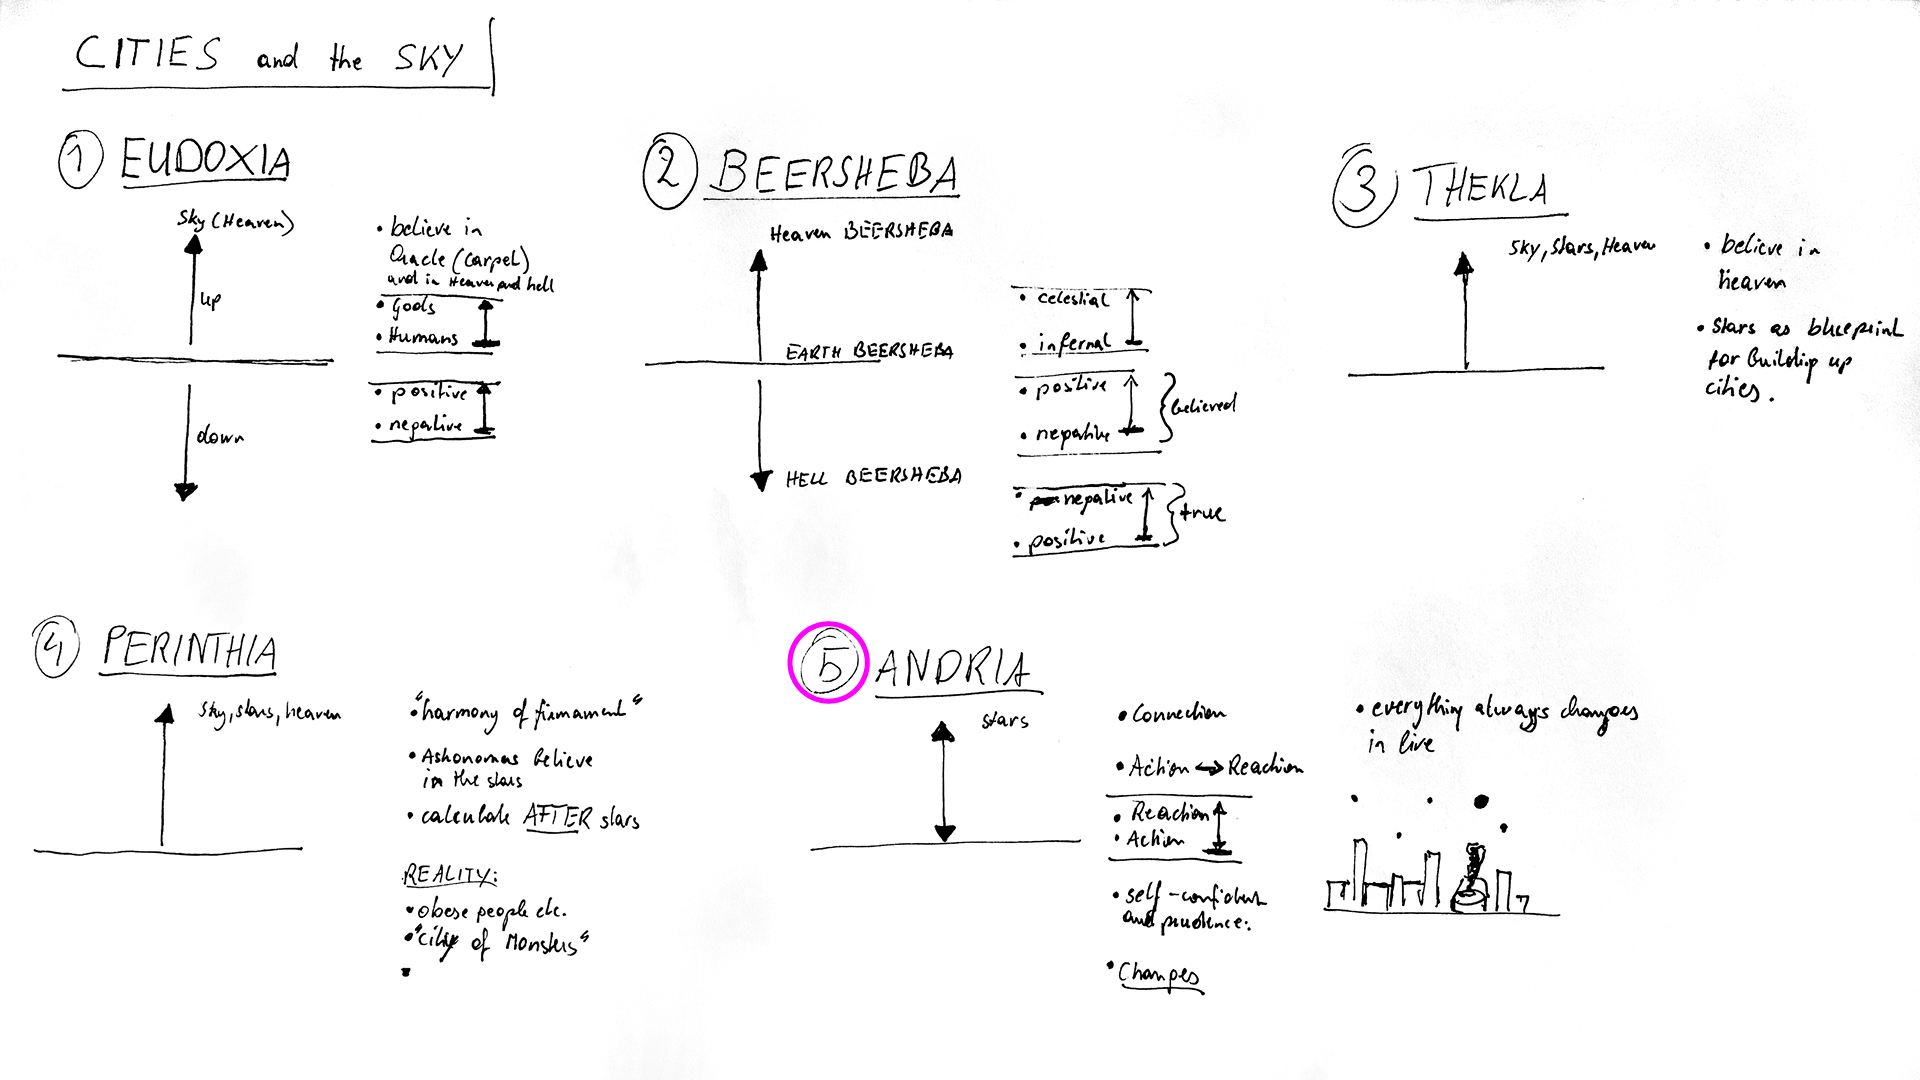 CITIES and the SKY
1 EUDOXIA
Sky (Heaven)
up
down
• believe in
Oracle (Carpet)
and in Heaven and hell
• Gods
• Humans
• positive
• negative
2 BEERSHEBA
Heaven BEERSHEBA
EARTH BEERSHEBA
HELL BEERSHEBA
• celestial
• infernal
• positive
• negative
believed
• negative
• positive
true
3 THEKLA
Sky, Stars, Heaven
• believe in
heaven
• Stars as blueprint
for building up
cities.
4 PERINTHIA
Sky, stars, heaven
• "harmony of firmament"
• Astronomers believe
in the stars
• calculate AFTER stars
REALITY:
• obese people etc.
• "city of Monsters"
5 ANDRIA
stars
• Connection
• Action ↔ Reaction
• Reaction
• Action
• self-confident
and prudence.
• Changes
• everything always changes
in live